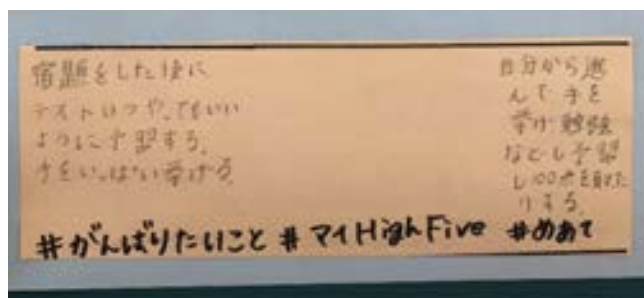 宿題をした後に
テストいつや、てもいい
ように予習する。
手をいっぱい挙げる。
自分から進
んで手を
挙げ勉強
などし予習
し100点を取った
りする。
#がんばりたいこと #マイHighFive #めあて